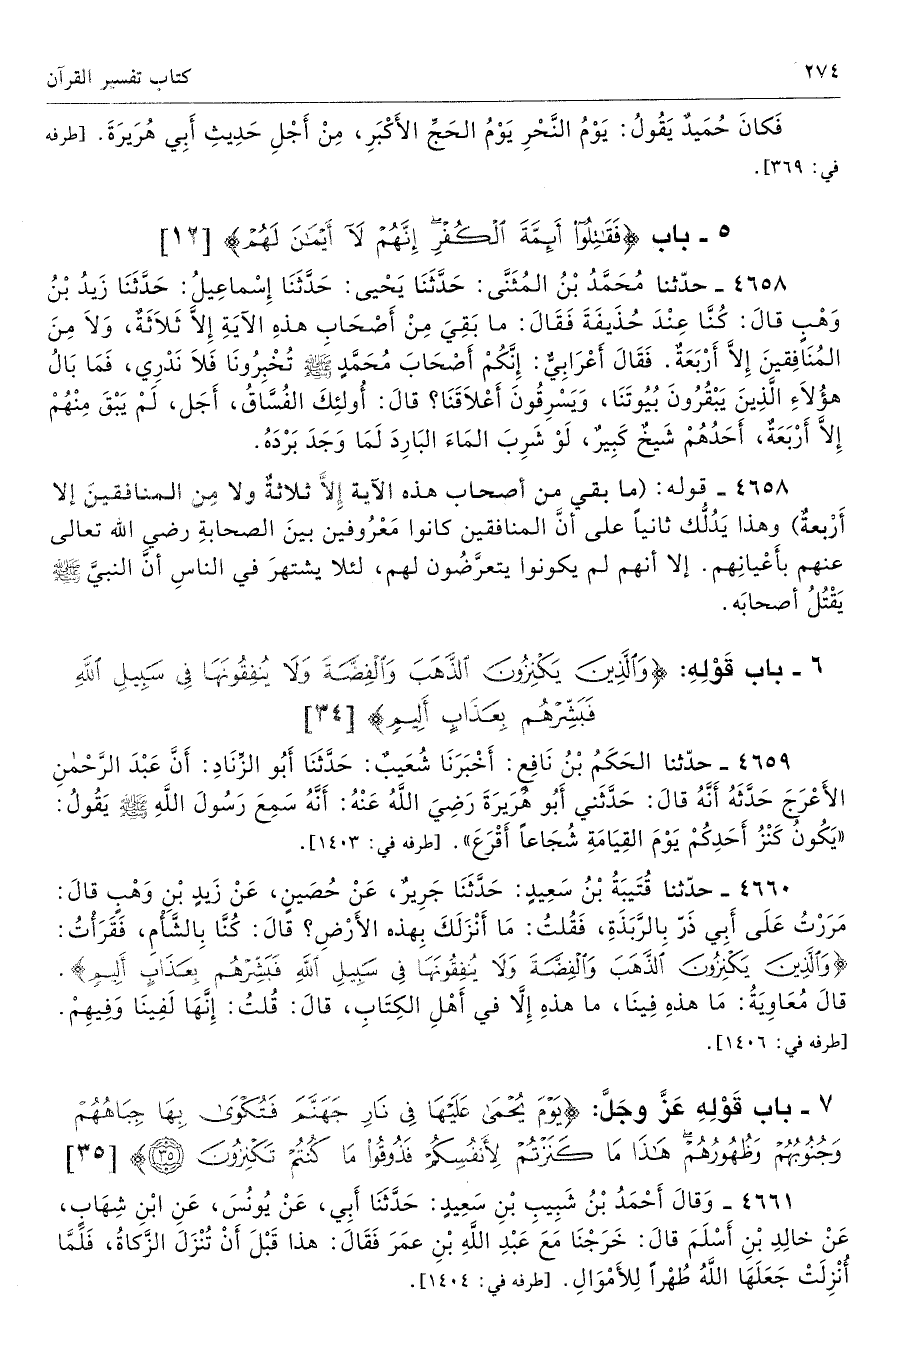 ٢٧٤
كتاب تفسير القرآن
فَكانَ حُمَيدٌ يَقُولُ: يَوْمُ النَّحْرِ يَوْمُ الحَجِّ الأَكْبَرِ، مِنْ أَجْلِ حَدِيثِ أَبِي هُرَيرَةَ. [طرفه
في: ٣٦٩].
٥ ـ باب ﴿فَقَٰتِلُوٓا۟ أَئِمَّةَ ٱلْكُفْرِ إِنَّهُمْ لَآ أَيْمَٰنَ لَهُمْ﴾ [١٢]
٤٦٥٨ ـ حدّثنا مُحَمَّدُ بْنُ المُثَنَّى: حَدَّثَنَا يَحْيى: حَدَّثَنَا إِسْماعِيلُ: حَدَّثَنَا زَيدُ بْنُ
وَهْبٍ قالَ: كُنَّا عِنْدَ حُذَيفَةَ فَقَالَ: ما بَقِيَ مِنْ أَصْحَابِ هذهِ الآيَةِ إِلاَّ ثَلاَثَةٌ، وَلاَ مِنَ
المُنَافِقينَ إِلاَّ أَرْبَعَةٌ. فَقَالَ أَعْرَابِيٌّ: إِنَّكُمْ أَصْحَابَ مُحَمَّدٍ ﷺ تُخْبِرُونَا فَلاَ نَدْرِي، فَمَا بَالُ
هؤُلاَءِ الَّذِينَ يَبْقُرُونَ بُيُوتَنَا، وَيَسْرِقُونَ أَعْلاَقَنَا؟ قالَ: أُولئِكَ الفُسَّاقُ، أَجَل، لَمْ يَبْقَ مِنْهُمْ
إِلاَّ أَرْبَعَةٌ، أَحَدُهُمْ شَيخٌ كَبِيرٌ، لَوْ شَرِبَ المَاءَ البَارِدَ لَمَا وَجَدَ بَرْدَهُ.
٤٦٥٨ ـ قوله: (ما بقي من أصحاب هذه الآية إلاَّ ثلاثةٌ ولا مِن المنافقينَ إلا
أَرْبعةٌ) وهذا يَدُلُّك ثانياً على أنَّ المنافقين كانوا مَعْرُوفين بينَ الصحابةِ رضي الله تعالى
عنهم بأَعْيانِهم. إلا أنهم لم يكونوا يتعرَّضُون لهم، لئلا يشتهرَ في الناسِ أنَّ النبيَّ ﷺ
يَقْتُلُ أصحابَه.
٦ ـ باب قَوْلِهِ: ﴿وَٱلَّذِينَ يَكْنِزُونَ ٱلذَّهَبَ وَٱلْفِضَّةَ وَلَا يُنفِقُونَهَا فِى سَبِيلِ ٱللَّهِ
فَبَشِّرْهُم بِعَذَابٍ أَلِيمٍ﴾ [٣٤]
٤٦٥٩ ـ حدّثنا الحَكَمُ بْنُ نَافِعٍ: أَخْبَرَنَا شُعَيبٌ: حَدَّثَنَا أَبُو الزِّنَادِ: أَنَّ عَبْدَ الرَّحْمٰنِ
الأَعْرَجَ حَدَّثَهُ أَنَّهُ قالَ: حَدَّثَني أَبُو هُرَيرَةَ رَضِيَ اللَّهُ عَنْهُ: أَنَّهُ سَمِعَ رَسُولَ اللَّهِ ﷺ يَقُولُ:
«يَكُونُ كَنْزُ أَحَدِكُمْ يَوْمَ القِيَامَةِ شُجَاعاً أَقْرَعَ». [طرفه في: ١٤٠٣].
٤٦٦٠ ـ حدّثنا قُتَيبَةُ بْنُ سَعِيدٍ: حَدَّثَنَا جَرِيرٌ، عَنْ حُصَينٍ، عَنْ زَيدِ بْنِ وَهْبٍ قالَ:
مَرَرْتُ عَلَى أَبِي ذَرّ بِالرَّبَذَةِ، فَقُلتُ: مَا أَنْزَلَكَ بِهذه الأَرْضِ؟ قالَ: كُنَّا بِالشَّأْمِ، فَقَرَأْتُ:
﴿وَٱلَّذِينَ يَكْنِزُونَ ٱلذَّهَبَ وَٱلْفِضَّةَ وَلَا يُنفِقُونَهَا فِى سَبِيلِ ٱللَّهِ فَبَشِّرْهُم بِعَذَابٍ أَلِيمٍ﴾.
قالَ مُعَاوِيَةُ: مَا هذهِ فِينَا، ما هذهِ إِلَّا في أَهْلِ الكِتَابِ، قالَ: قُلتُ: إِنَّهَا لَفِينَا وَفِيهِمْ.
[طرفه في: ١٤٠٦].
٧ ـ باب قَوْلِهِ عَزَّ وجَلَّ: ﴿يَوْمَ يُحْمَىٰ عَلَيْهَا فِى نَارِ جَهَنَّمَ فَتُكْوَىٰ بِهَا جِبَاهُهُمْ
وَجُنُوبُهُمْ وَظُهُورُهُمْ ۖ هَٰذَا مَا كَنَزْتُمْ لِأَنفُسِكُمْ فَذُوقُوا۟ مَا كُنتُمْ تَكْنِزُونَ ﴿٣٥﴾﴾ [٣٥]
٤٦٦١ ـ وَقالَ أَحْمَدُ بْنُ شَبِيبِ بْنِ سَعِيدٍ: حَدَّثَنَا أَبِي، عَنْ يُونُسَ، عَنِ ابْنِ شِهَابٍ،
عَنْ خالِدِ بْنِ أَسْلَمَ قالَ: خَرَجْنَا مَعَ عَبْدِ اللَّهِ بْنِ عمَرَ فَقَالَ: هذا قَبْلَ أَنْ تُنْزَلَ الزَّكاةُ، فَلَمَّا
أُنْزِلَتْ جَعَلَهَا اللَّهُ طُهْراً لِلأَمْوَالِ. [طرفه في: ١٤٠٤].